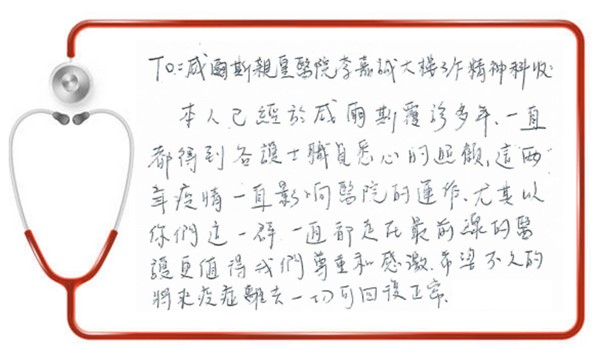 To:威爾斯親皇醫院李嘉誠大樓3作精神科收:
本人已經於威爾斯覆診多年、一直
都得到各護士職員悉心的照顧,這兩
年疫情一直影响醫院的運作、尤其以
你們這一群 一直都走在最前線的醫
護更值得我們尊重和感激.希望不久的
將來疫症離去一切可回復正常.